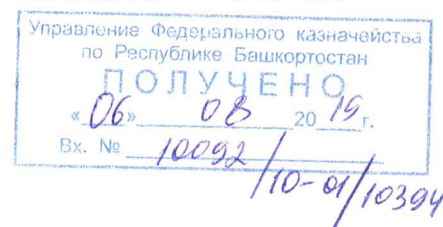 Управление Федерального казначейства
по Республике Башкортостан
ПОЛУЧЕНО
«06» 08 2019 г.
Вх. № 10092/
/10-01/10394